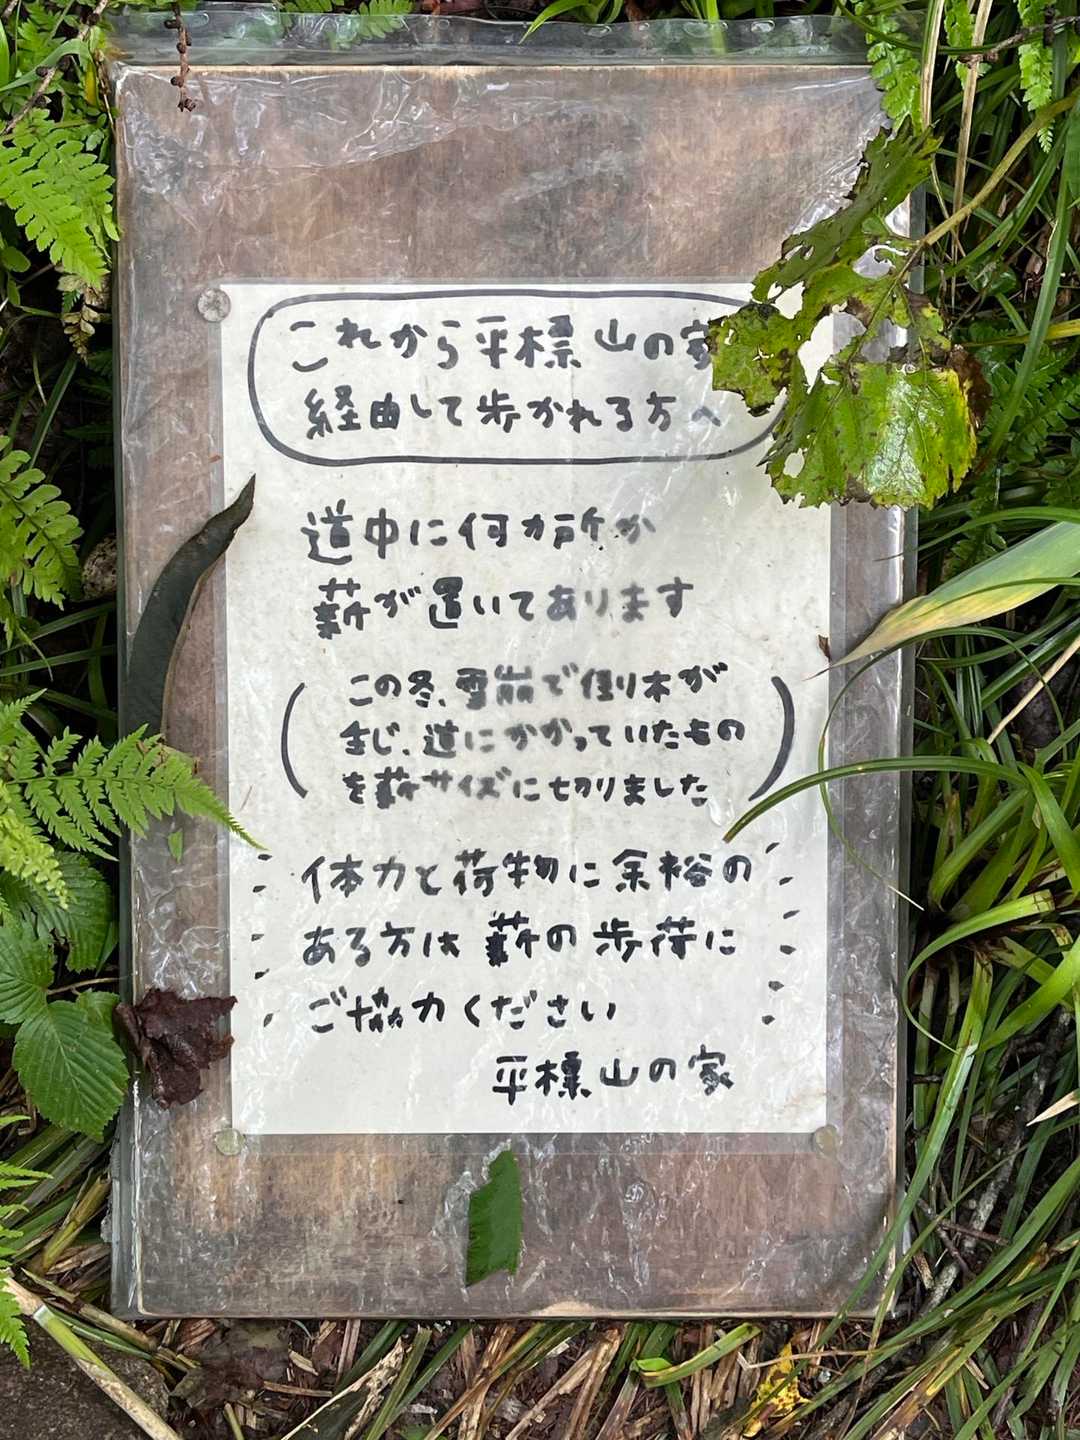 これから平標山の家
経由して歩かれる方へ
道中に何カ所か
薪が置いてあります
(この冬、雪崩で倒り木が
生じ、道にかかっていたもの
を薪サイズに切りました)
体力と荷物に余裕の
ある方は薪の歩荷に
ご協力ください
平標山の家